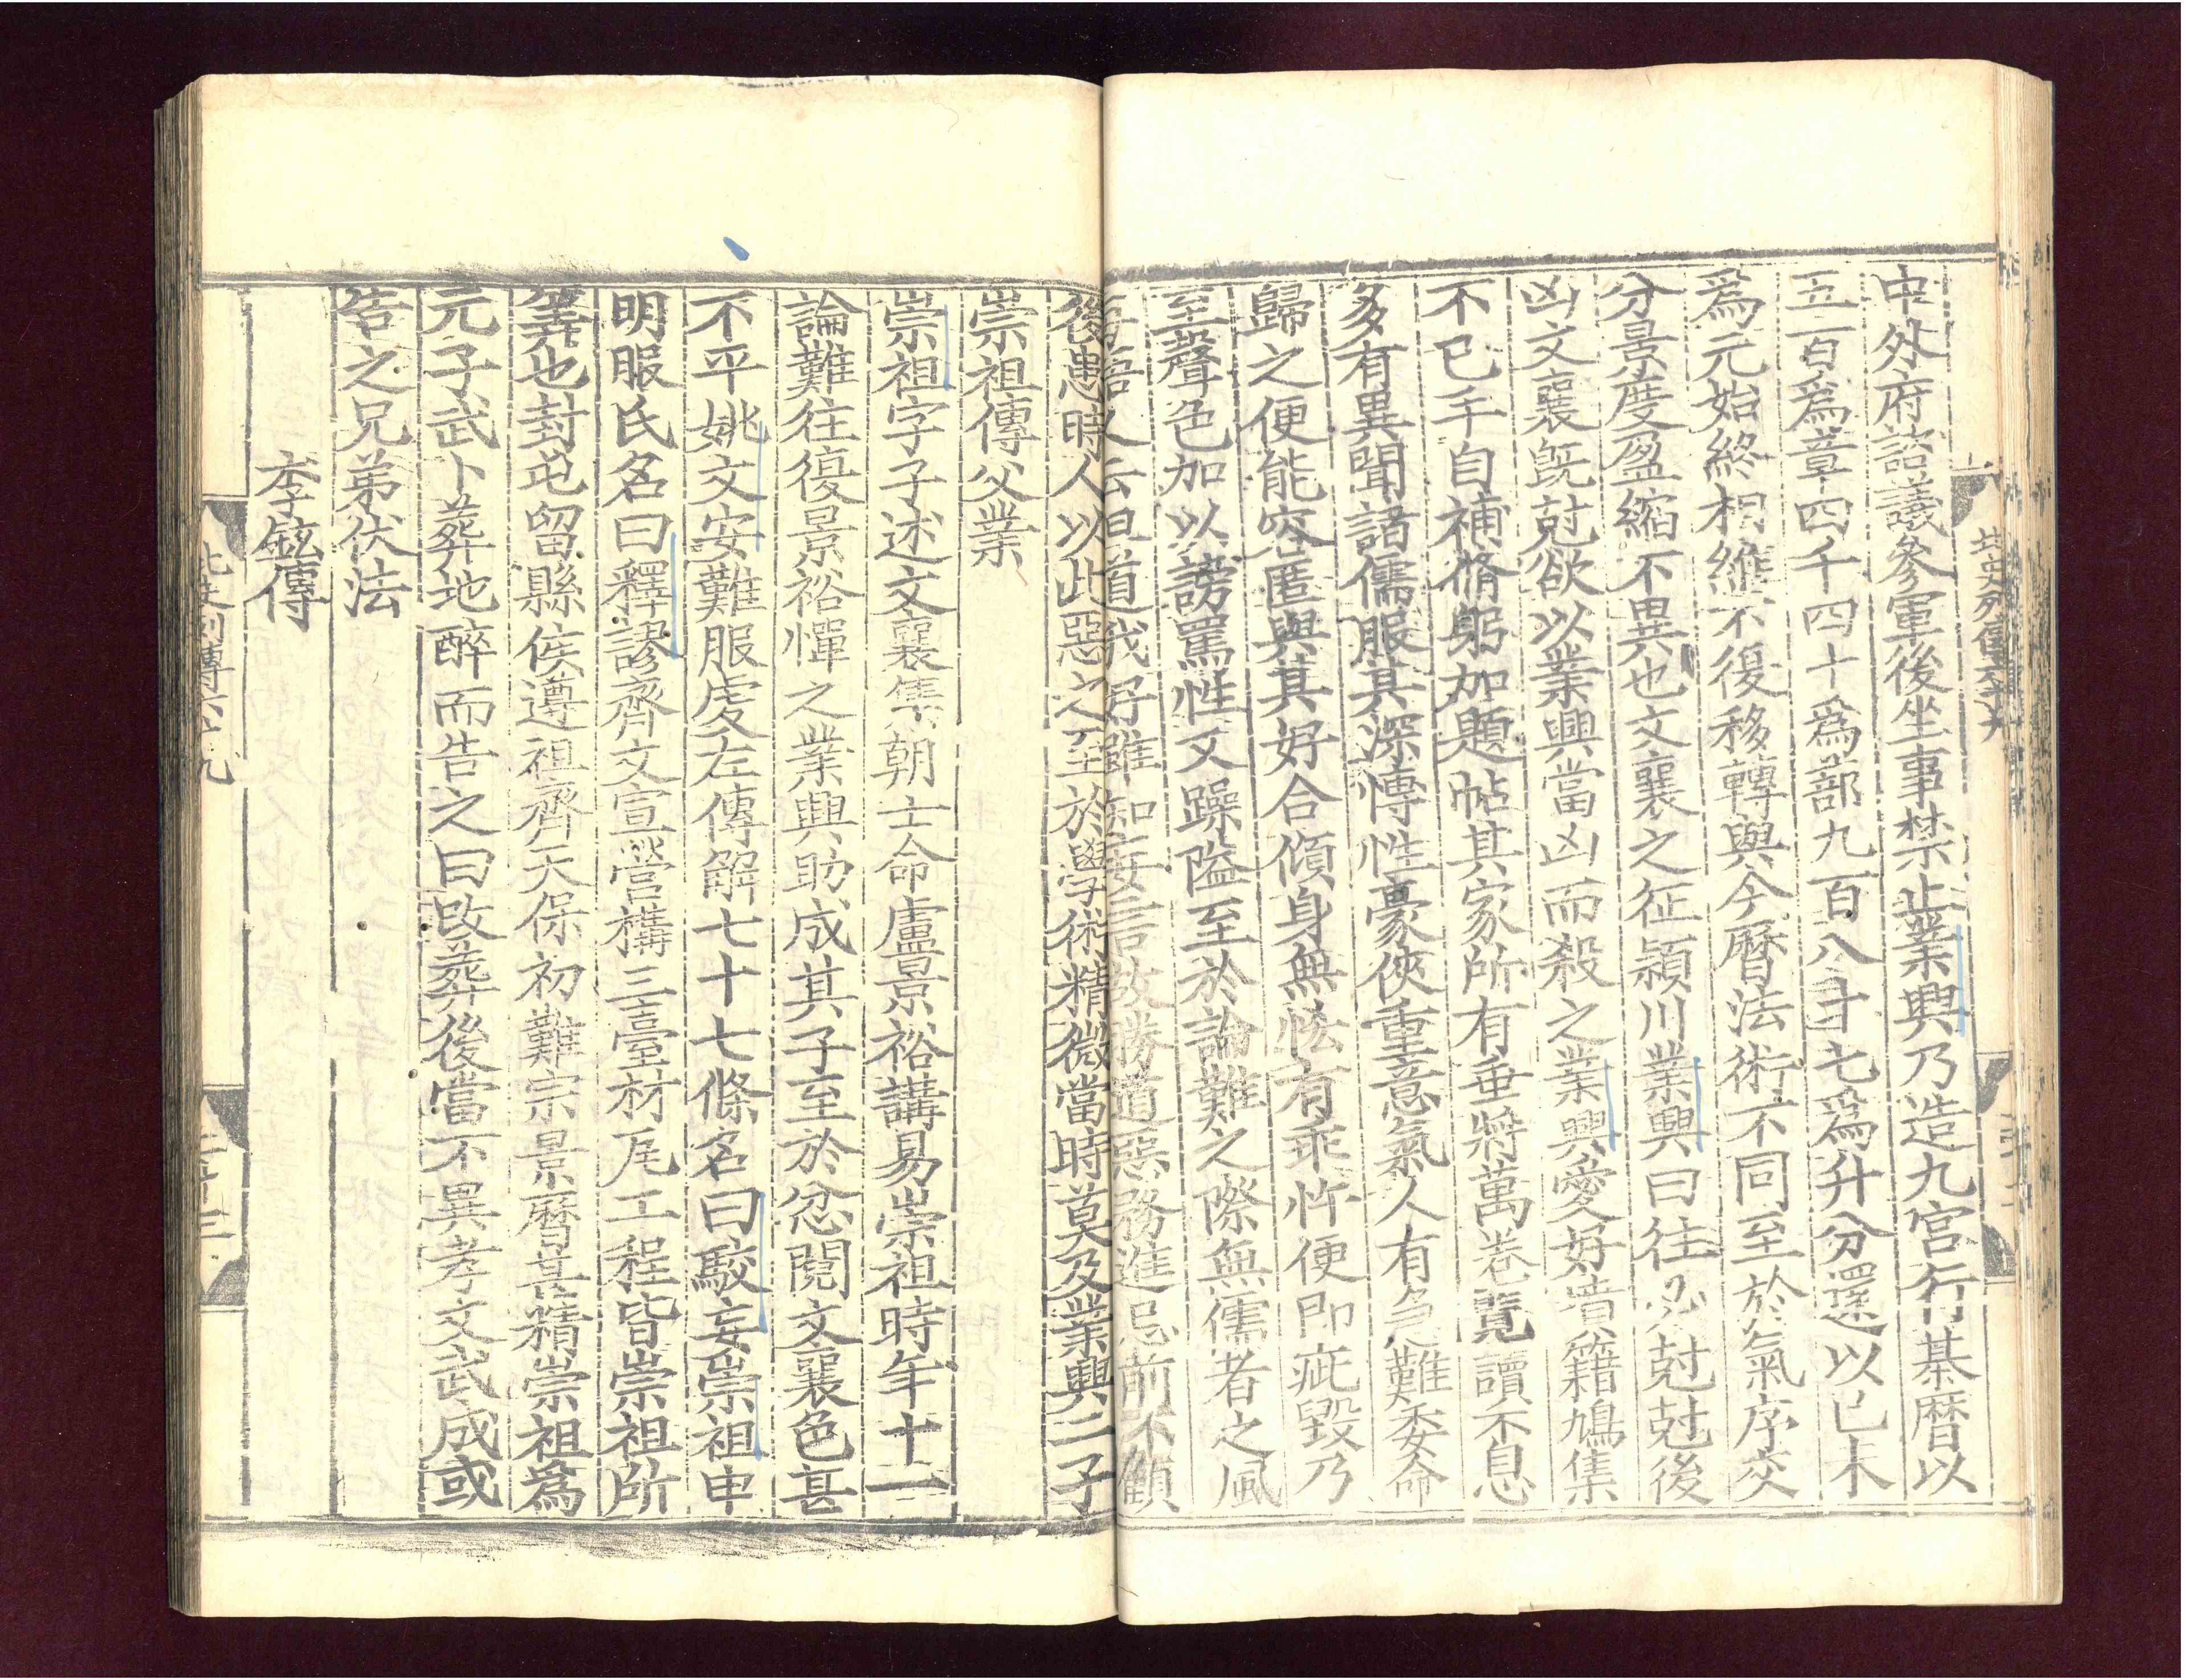 中外府諮議參軍後坐事禁止業興乃造九宮行棊曆以
五百爲章四千四十爲部九百八十七爲升分還以己未
爲元始終相維不復移轉與今曆法術不同至於氣序交
分景度盈縮不異也文襄之征潁川業興曰往必尅尅後
凶文襄旣尅欲以業興當凶而殺之業興愛好墳籍鳩集
不已手自補脩躬加題帖其家所有垂將萬卷覽讀不息
多有異聞諸儒服其深愽性豪俠重意氣人有急難委命
歸之便能容匿與其好合傾身無恡有乖忤便即疵毀乃
至聲色加以謗罵性又躁隘至於論難之際無儒者之風
每語人云但道我好雖知妄言故勝道惡務進忌前不顧
後患時人以此惡之至於學術精微當時莫及業興二子
崇祖傳父業
崇祖字子述文襄集朝士命盧景裕講易崇祖時年十一
論難往復景裕憚之業興助成其子至於忿鬩文襄色甚
不平姚文安難服虔左傳解七十七條名曰駮妄崇祖申
明服氏名曰釋謬齊文宣營構三臺材瓦工程皆崇祖所
筭也封屯留縣侯遵祖齊天保初難宗景曆甚精崇祖爲
元子武卜葬地醉而告之曰改葬後當不異孝文武成或
告之兄弟伏法
李鉉傳
北史列傳六十九
二十三